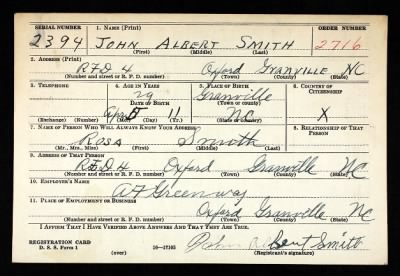 SERIAL NUMBER 1. NAME (Print) ORDER NUMBER
2394 JOHN ALBERT SMITH 2716
(First) (Middle) (Last)
2. ADDRESS (Print)
RFD 4 Oxford GRANVILLE NC
(Number and street or R. F. D. number) (Town) (County) (State)
3. TELEPHONE 4. AGE IN YEARS 5. PLACE OF BIRTH 6. COUNTRY OF CITIZENSHIP
29 Granville
DATE OF BIRTH (Town or county)
April 11 NC X
(Exchange) (Number) (Mo.) (Day) (Yr.) (State or country)
7. NAME OF PERSON WHO WILL ALWAYS KNOW YOUR ADDRESS 8. RELATIONSHIP OF THAT PERSON
Rosa Smith
(Mr., Mrs., Miss) (First) (Middle) (Last)
9. ADDRESS OF THAT PERSON
RFD 4 Oxford Granville NC
(Number and street or R. F. D. number) (Town) (County) (State)
10. EMPLOYER'S NAME
A F Greenway
11. PLACE OF EMPLOYMENT OR BUSINESS
Oxford Granville NC
(Number and street or R. F. D. number) (Town) (County) (State)
I AFFIRM THAT I HAVE VERIFIED ABOVE ANSWERS AND THAT THEY ARE TRUE.
REGISTRATION CARD
D. S. S. Form 1 (over) 16—17105 John Albert Smith
(Registrant's signature)